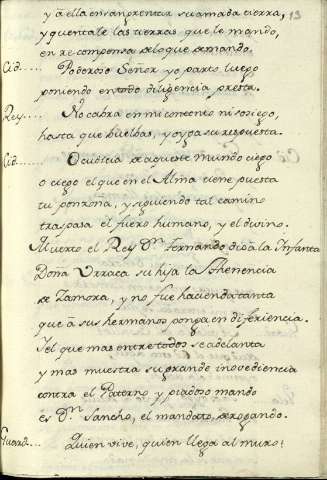 y a ella en sangrentar su amada tierra, 13
y quentale las tierras que le mando,
en recompensa de lo que demando.
Cid.... Poderoso Señor yo parto luego
poniendo en todo diligencia presta.
Rey.... No cabra en mi contento ni sosiego,
hasta que buelbas, y oyga su respuesta.
Cid...... O cudicia de aqueste mundo ciego
o ciego el que en el Alma tiene puesta
tu ponzona, y siguiendo tal camino
traspasa el fuero humano, y el divino.
Muerto el Rey Dn. Fernando dio a la Infanta
Doña Urraca su hija la Ehenencia
de Zamora, y no fue hacienda tanta
que a sus hermanos ponga en diferiencia.
Y el que mas entre todos se adelanta
y mas muestra su grande inovediencia
contra el Paterno y piadoso mando
es Dn. Sancho, el mandato derogando.
Guard... Quien vive, quien llega al muro?